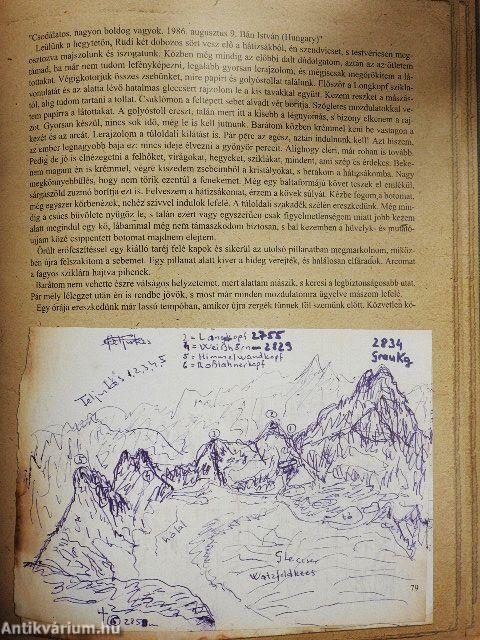 "Csodálatos, nagyon boldog vagyok. 1986. augusztus 9. Bán István (Hungary)"
Leülünk a hegytetőn, Rudi két dobozos sört vesz elő a hátizsákból, én szendvicset, s testvériesen meg-
osztozva majszolunk és iszogatunk. Közben még mindig az előbbi dalt dúdolgatom, aztán az az ötletem
támad, ha már nem tudom lefényképezni, legalább gyorsan lerajzolom, és mégiscsak megörökítem a lá-
tottakat. Végigkotorjuk összes zsebünket, míg papírt és golyóstollat találunk. Először a Longkopf szikla-
vonulatát és az alatta lévő hatalmas gleccsert rajzolom le a kis tavakkal együtt. Kezem reszket a mászás-
tól, alig tudom tartani a tollat. Csuklómon a feltépett sebet alvadt vér borítja. Szögletes mozdulatokkal ve-
tem papírra a látottakat. A golyóstoll ereszt, talán mert itt a kisebb a légnyomás, s bizony elkenem a raj-
zot. Gyorsan készül, nincs sok idő, még le is kell jutnunk. Barátom közben krémmel keni be vastagon a
kezét és az arcát. Lerajzolom a túloldali kilátást is. Pár perc az egész, aztán indulnunk kell! Azt hiszem,
az ember legnagyobb baja ez: nincs ideje élvezni a gyönyör perceit. Alighogy elért, már rohan is tovább.
Pedig de jó is elnézegetni a felhőket, virágokat, hegyeket, sziklákat, mindent, ami szép és érdekes. Beke-
nem magam én is krémmel, végre kiszedem zsebeimből a kristályokat, s berakom a hátizsákomba. Nagy
megkönnyebbülés, hogy nem törik ezentúl a fenekemet. Még egy baltaformájú követ teszek el emlékül,
sárgászöld zuzmó borítja ezt is. Felveszem a hátizsákomat, érzem a kövek súlyát. Kézbe fogom a botomat,
még egyszer körbenézek, nehéz szívvel indulok lefelé. A túloldali szakadék szélén ereszkedünk. Még min-
dig a csúcs bűvölete nyűgöz le, s talán ezért vagy egyszerűen csak figyelmetlenségem miatt jobb kezem
alatt megindul egy kő, lábammal még nem támaszkodom biztosan, s bal kezemben a hüvelyk- és mutató-
ujjam közé csippentett botomat majdnem elejtem.
Őrült erőfeszítéssel egy kiálló taréj felé kapok és sikerül az utolsó pillanatban megmarkolnom, miköz-
ben újra felszakítom a sebemet. Egy pillanat alatt kiver a hideg verejték, és halálosan elfáradok. Arcomat
a fagyos sziklára hajtva pihenek.
Barátom nem vehette észre válságos helyzetemet, mert alattam mászik, s keresi a legbiztonságosabb utat.
Pár mély lélegzet után én is rendbe jövök, s most már minden mozdulatomra ügyelve mászom lefelé.
Egy órája ereszkedünk már lassú tempóban, amikor újra zergék tűnnek fül szemünk előtt. Közvetlen kö-
3 = Longkopf 2755
4 = Weißhorn 2829
5 = Himmelwandkopf
6 = Roßlahnerkopf
2834
GrauKg
1, 2, 3, 4, 5
5
4
3
2
1
hótól
Gleccser
Watzfeldkees
6
79
Antikvárium.hu